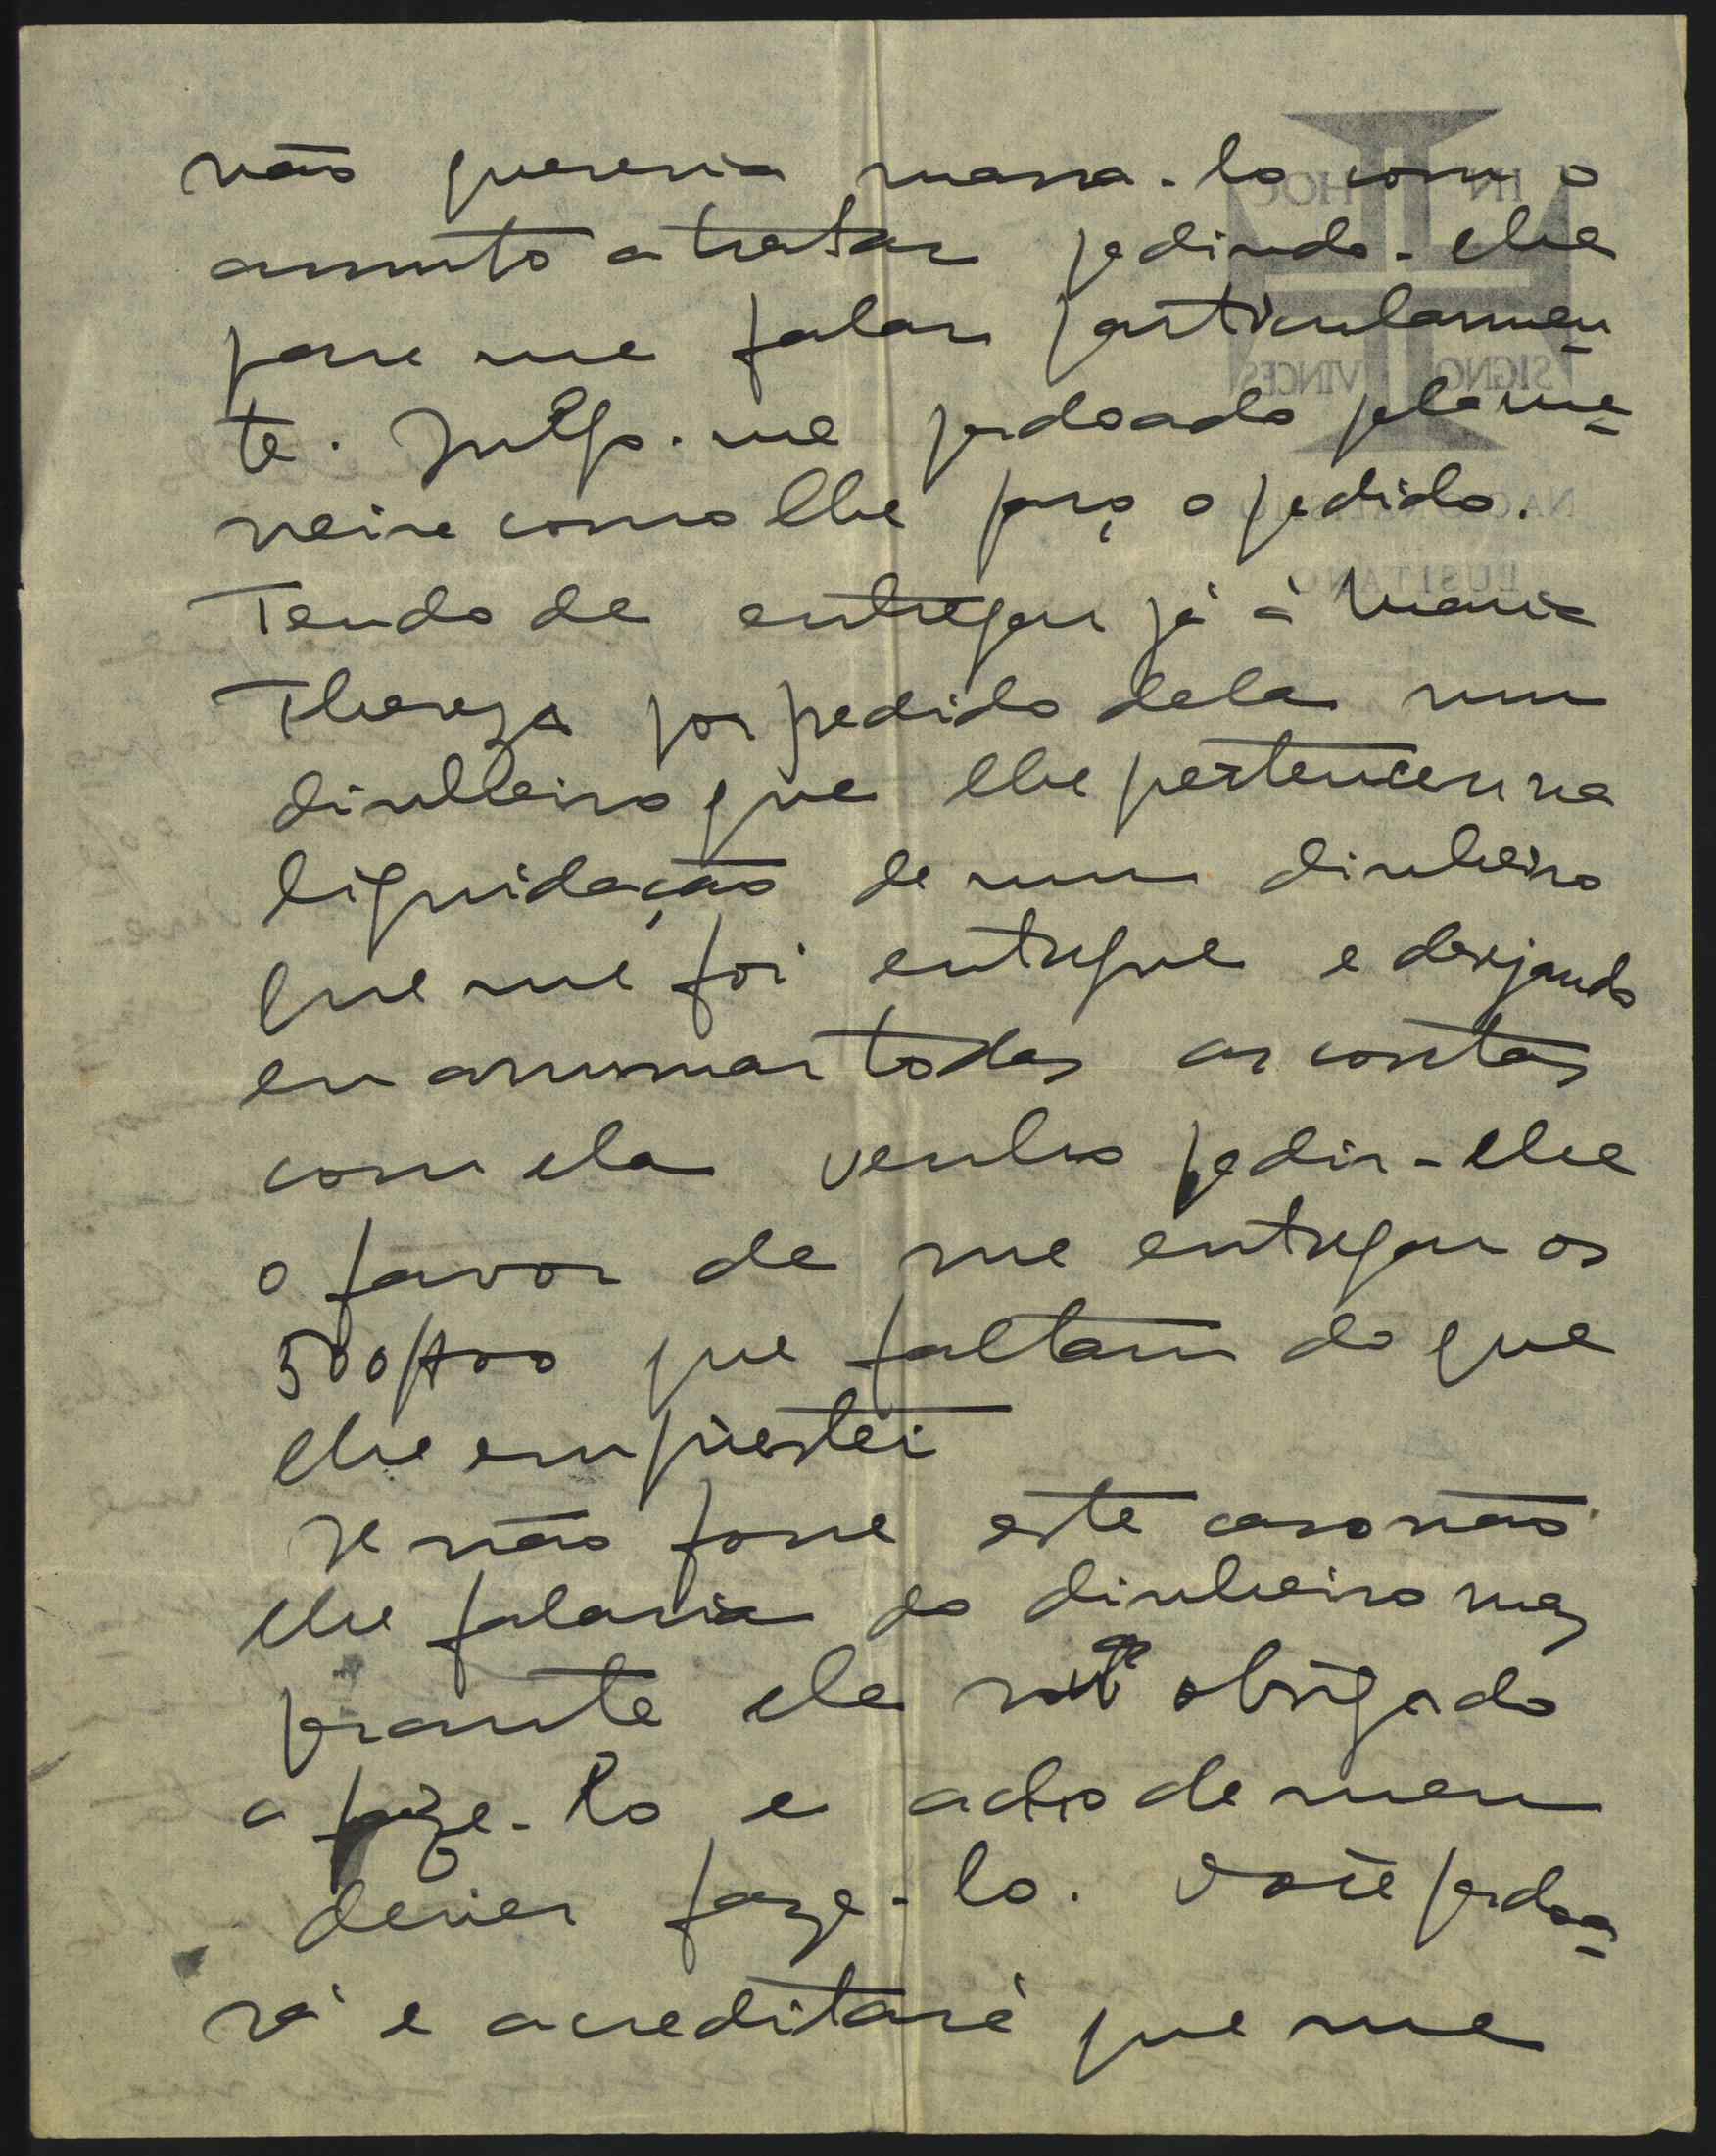 não quereria massa-lo com o
assunto a tratar pedindo-lhe
para me falar particularmen-
te. Julgo-me perdoado pela ma-
neira como lhe faço o pedido.
Tendo de entregar já á Maria
Thereza por pedido dela um
dinheiro que lhe pertenceu na
liquidação de um dinheiro
que me foi entregue e desejando
eu arrumar todas as contas
com ela venho pedir-lhe
o favor de me entregar os
500$00 que faltam do que
lhe emprestei
Se não fosse este caso não
lhe falaria do dinheiro mas
perante ele obrigado
a faze-lo e acho de meu
dever faze-lo. Você perdoa-
rá e acreditará que me
IN HOC
SIGNO VINCES
LUSITANO